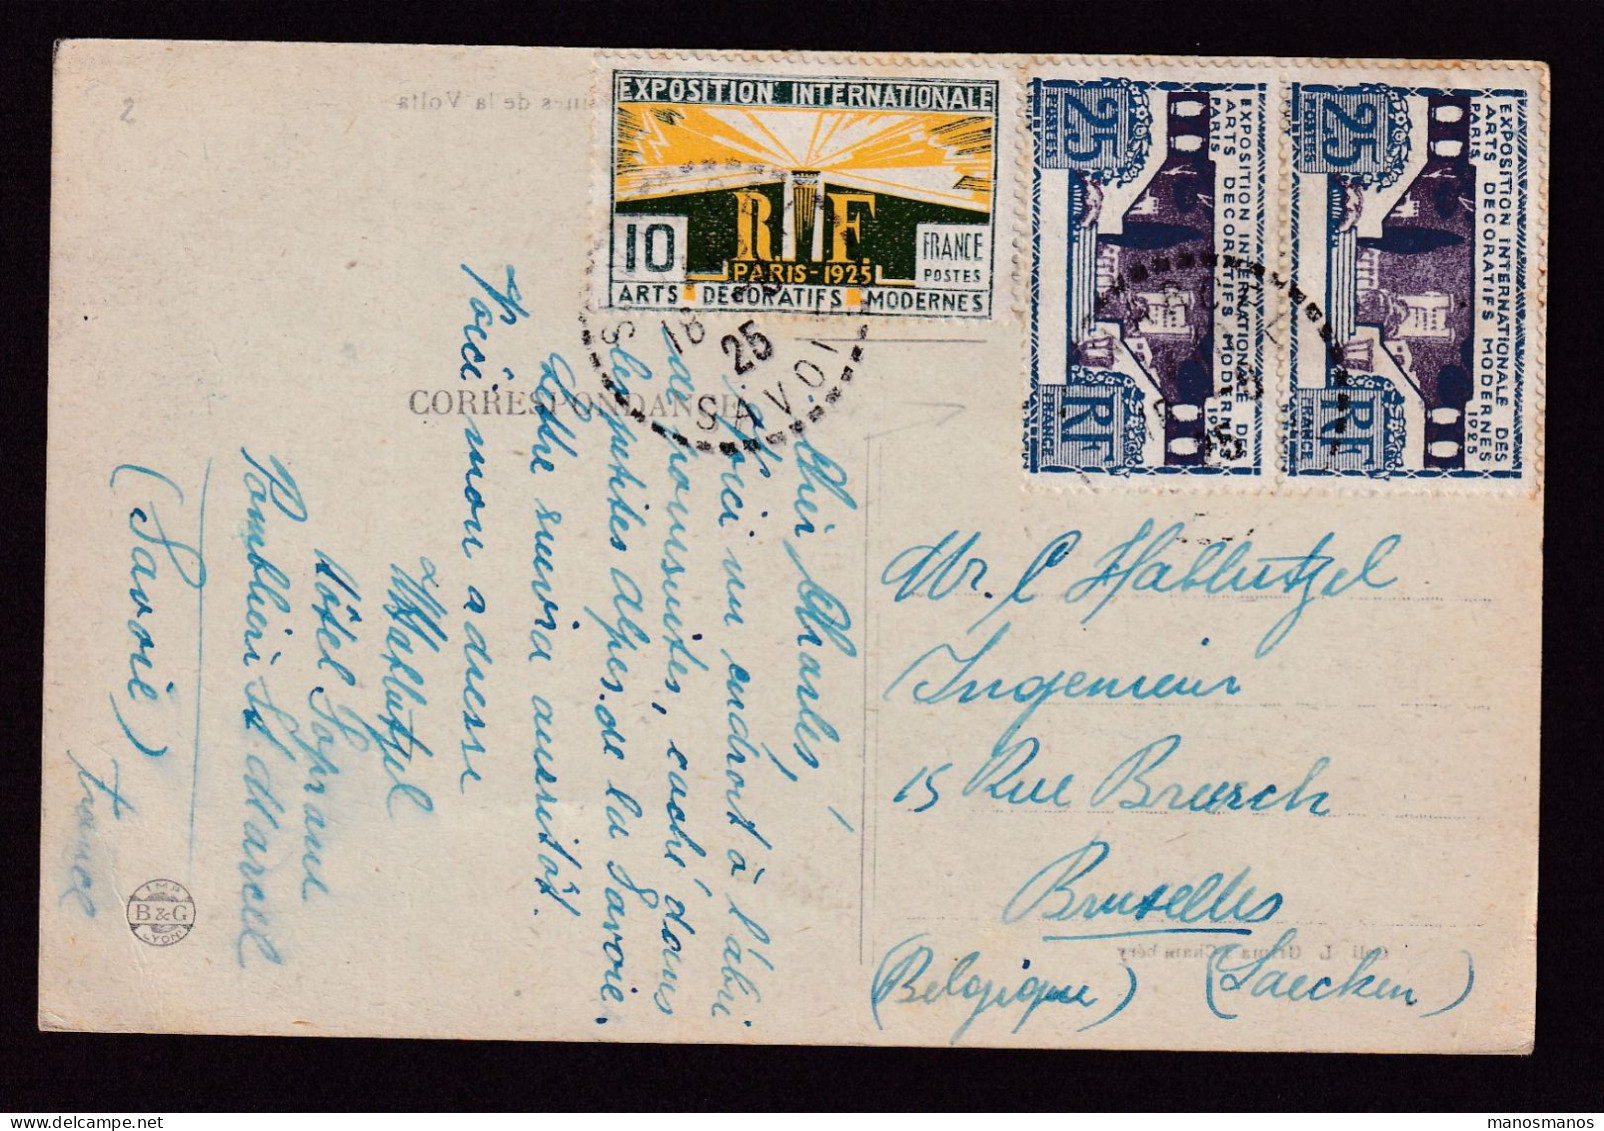 EXPOSITION INTERNATIONALE
R.F.
10
PARIS-1925
FRANCE
POSTES
ARTS DÉCORATIFS MODERNES
25
POSTES
EXPOSITION INTERNATIONALE DES
ARTS DECORATIFS MODERNES
PARIS 1925
RF
FRANCE
25
POSTES
EXPOSITION INTERNATIONALE DES
ARTS DECORATIFS MODERNES
PARIS 1925
RF
FRANCE
18
25
SAVOI
CORRESPONDANCE
Cher Charles,
Voici un endroit à l'abri
de poursuites, caché dans
les petites alpes de la Savoie.
Lettre suivra aussitôt.
Voici mon adresse
Hablutzel
Hôtel Soprani
Pomblieri St Marcel
(Savoie)
France
Mr. C Hablutzel
Ingenieur
15 Rue Breesch
Bruxelles
(Belgique) (Laecken)
IMP.
B&G
LYON
de la Volta
Coll L. Grima Chambéry
2
manosmanos